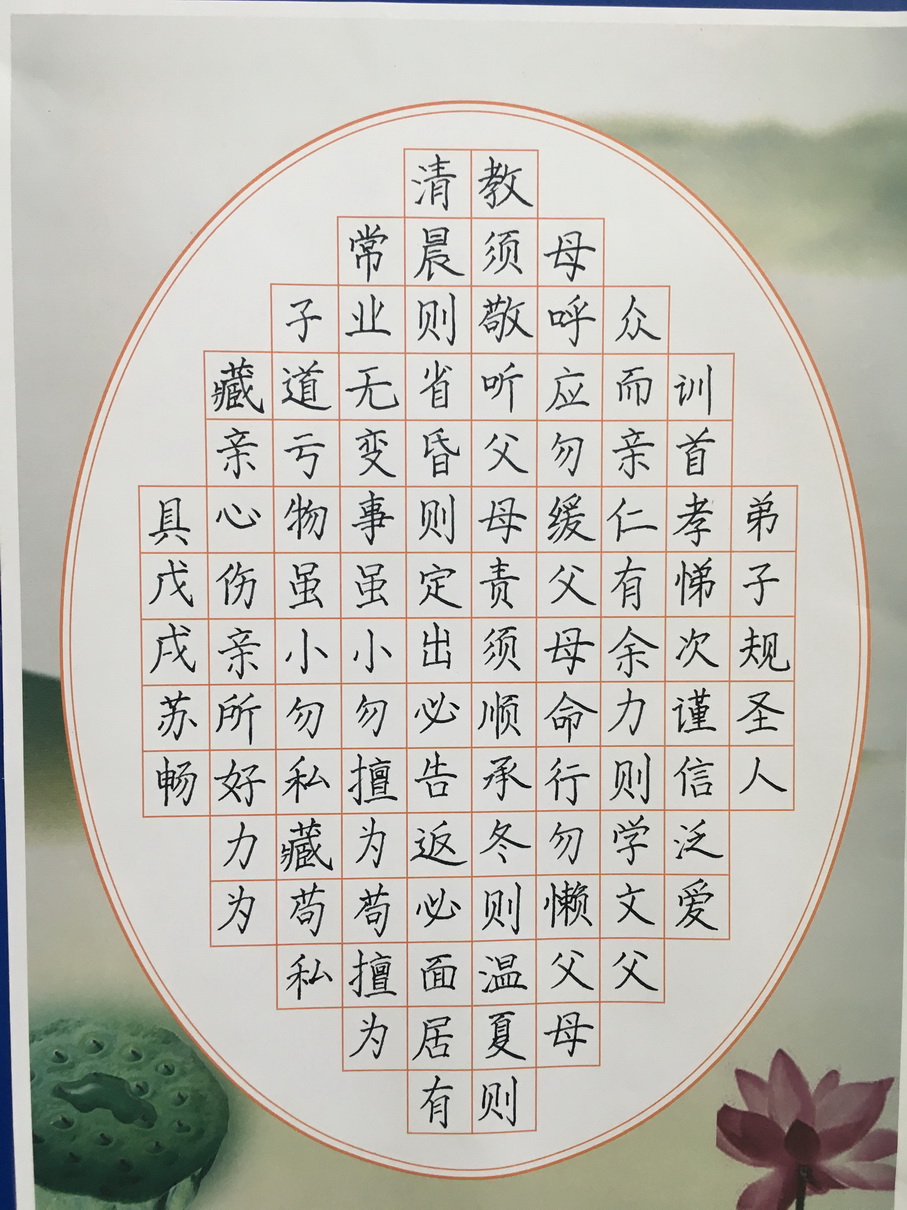 弟子规圣人
训首孝悌次谨信泛爱
众而亲仁有余力则学文父
母呼应勿缓父母命行勿懒父母
教须敬听父母责须顺承冬则温夏则
清晨则省昏则定出必告返必面居有
常业无变事虽小勿擅为苟擅为
子道亏物虽小勿私藏苟私
藏亲心伤亲所好力为
具戊戌苏畅